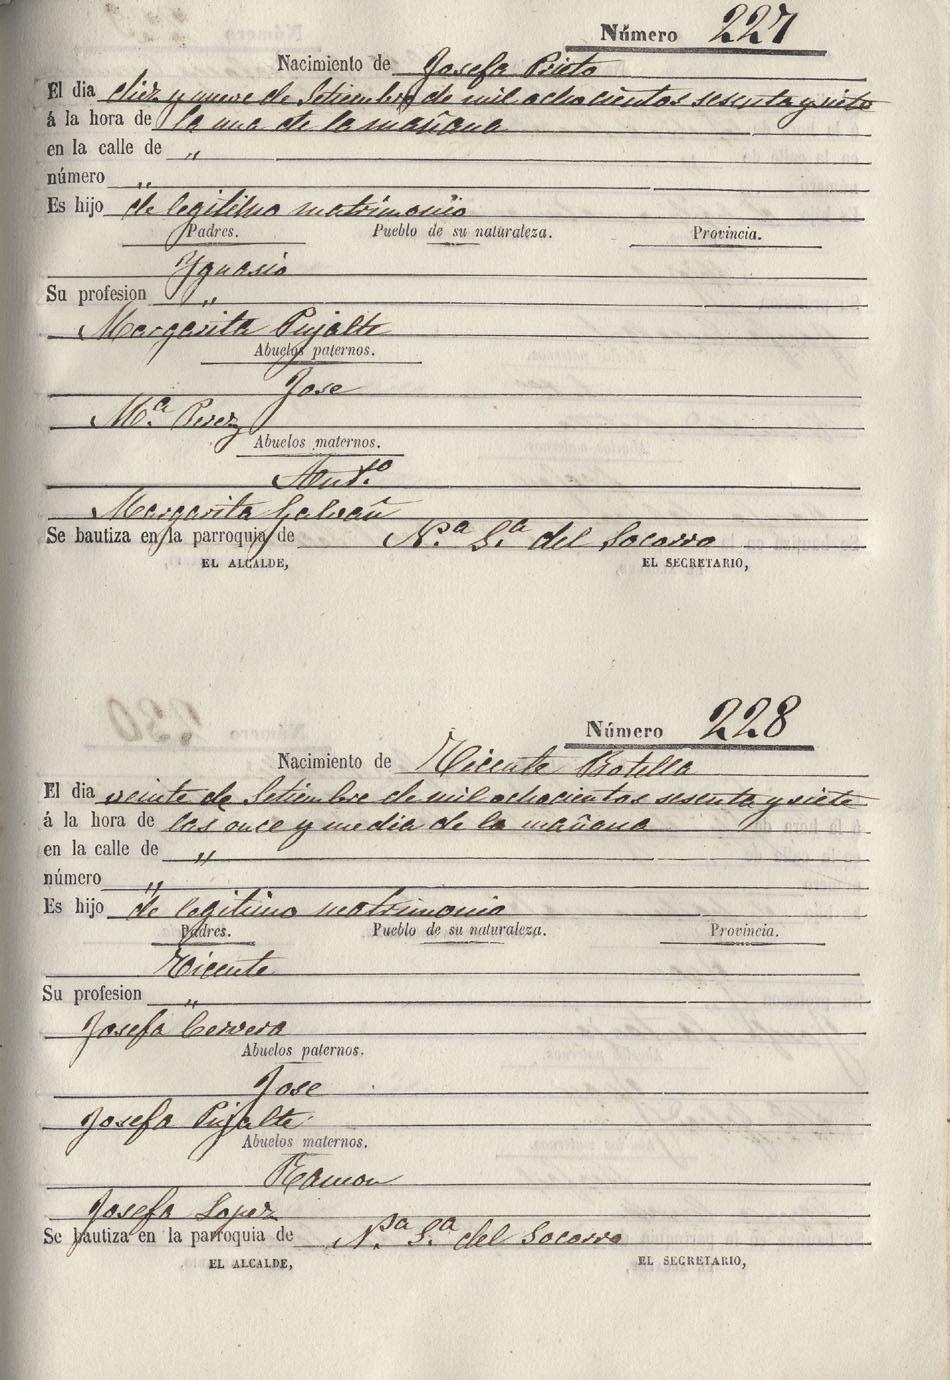 Número 227
Nacimiento de Josefa Prieto
El dia diez y nueve de Setiembre de mil ochocientos sesenta y siete
á la hora de la una de la mañana
en la calle de „
número „
Es hijo de legitimo matrimonio
Padres. Pueblo de su naturaleza. Provincia.
Ygnasio
Su profesion „
Margarita Pujalte
Abuelos paternos.
Jose
M.ª Perez
Abuelos maternos.
Ant.º
Margarita Galvañ
Se bautiza en la parroquia de N.ª S.ª del Socorro
EL ALCALDE, EL SECRETARIO,
Número 228
Nacimiento de Vicente Botella
El dia veinte de Setiembre de mil ochocientos sesenta y siete
á la hora de las once y media de la mañana
en la calle de „
número „
Es hijo de legitimo matrimonio
Padres. Pueblo de su naturaleza. Provincia.
Vicente
Su profesion „
Josefa Cervera
Abuelos paternos.
Jose
Josefa Pujalte
Abuelos maternos.
Ramon
Josefa Lopez
Se bautiza en la parroquia de N.ª S.ª del Socorro
EL ALCALDE, EL SECRETARIO,